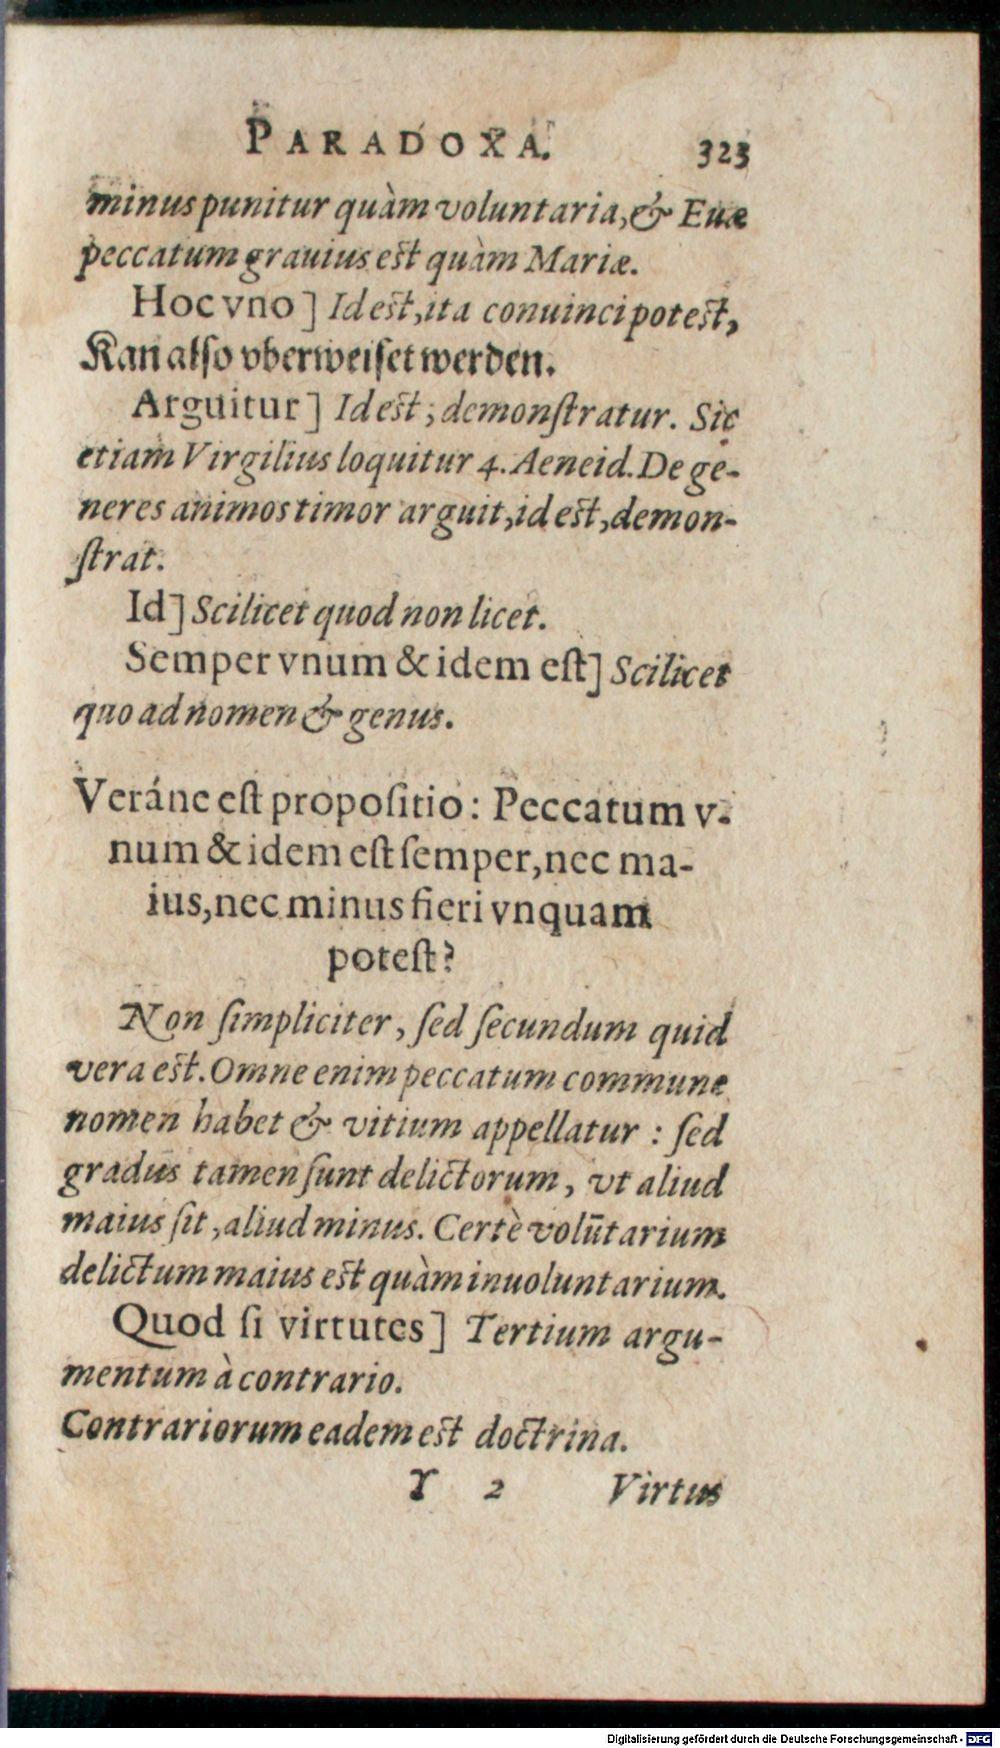 PARADOXA. 323
minus punitur quàm voluntaria, & Euæ
peccatum grauius est quàm Mariæ.
Hoc vno] Id est, ita conuinci potest,
Kan also vberweiset werden.
Arguitur] Id est; demonſtratur. Sic
etiam Virgilius loquitur 4. Aeneid. De ge-
neres animos timor arguit, id est, demon-
ſtrat.
Id] Scilicet quod non licet.
Semper vnum & idem eſt] Scilicet
quo ad nomen & genus.
Veráne eſt propoſitio: Peccatum v-
num & idem eſt ſemper, nec ma-
ius, nec minus fieri vnquam
poteſt?
Non ſimpliciter, ſed ſecundum quid
vera est. Omne enim peccatum commune
nomen habet & vitium appellatur : ſed
gradus tamen ſunt delictorum, vt aliud
maius ſit, aliud minus. Certè volūtarium
delictum maius est quàm inuoluntarium.
Quod ſi virtutes] Tertium argu-
mentum à contrario.
Contrariorum eadem est doctrina.
Y 2 Virtus
Digitalisierung gefördert durch die Deutsche Forschungsgemeinschaft - DFG